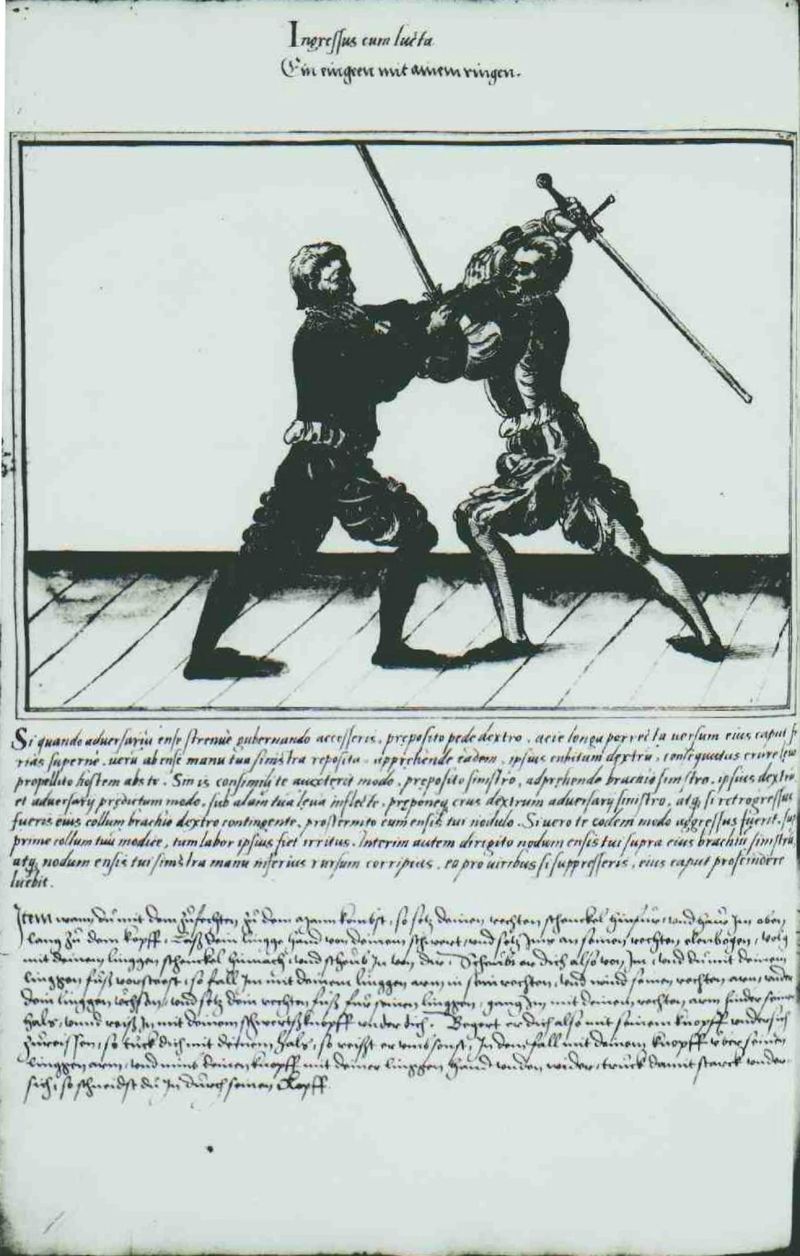 Ingressus cum lucta
Ein eingeen mit ainem ringen.
Si quando adversariũ ense strenue gubernando accesseris, preposito pede dextro, acie longa porrecta versum eius caput f
rias superne, veru ab ense manu tua sinistra reposita, apprehende eadem, ipsius cubitum dextrũ, consequutus crure
propellito hostem abs te. Sin is consimili te auxterit modo, preposito sinistro, adprehendo brachio sinistro, ipsius dextro
et adversary predictum modo, sub alam tua leva inflecte, preponeq crus dextrum adversary sinistro, atq si retrogressus
fueris eius collum brachio dextro contingente, prosternito eum ensis tui nodulo. Si vero te eodem modo aggressus fuerit, sup
prime collum tuũ modice, tum labor ipsius fiet irritus. Interim autem dirigito nodum ensis tui supra eius brachiũ sinistrũ
atq nodum ensis tui sinistra manu inferius rursum corripias, eo pro viribus si suppresseris, eius caput proscindere
licebit.
Item wann du mit dem zufechten zu dem mann kombst, so setz deinen rechten schenckel hinfur, vnnd haw Im oben
lang zu dem kopff, Lass dein lingge hand von deinem schwert, vnd setz Imr an seinen rechten elenbogen, volg
mit deinem linggen schenckel hinnach, vnd scheub In von dir, Scheubt er dich also von Im, vnd du mit deinem
linggen fuß vorsteest, so fall Im mit deinem linggen arm in sein rechten, vnd wind seinen rechten arm vnder
dein linggen vchsen, vnd setz dein rechten fuß fur seinen linggen, gang Im mit deinem rechten arm hinder seinen
hals, vnnd reiß In mit deinem schwertsknopff vnder dich. Begert er dich also mit seinem knopff vndersich
zureissen, so tuck dich mit deinem hals, so reißt er vmb sonst, In dem fall mit deinem knopff vber seinen
linggen arm, vnd nimb deinen knopff mit deiner linggen hand vnden wider, truck damit starck vnder-
sich, so schneidst du In durch seinen Kopff.